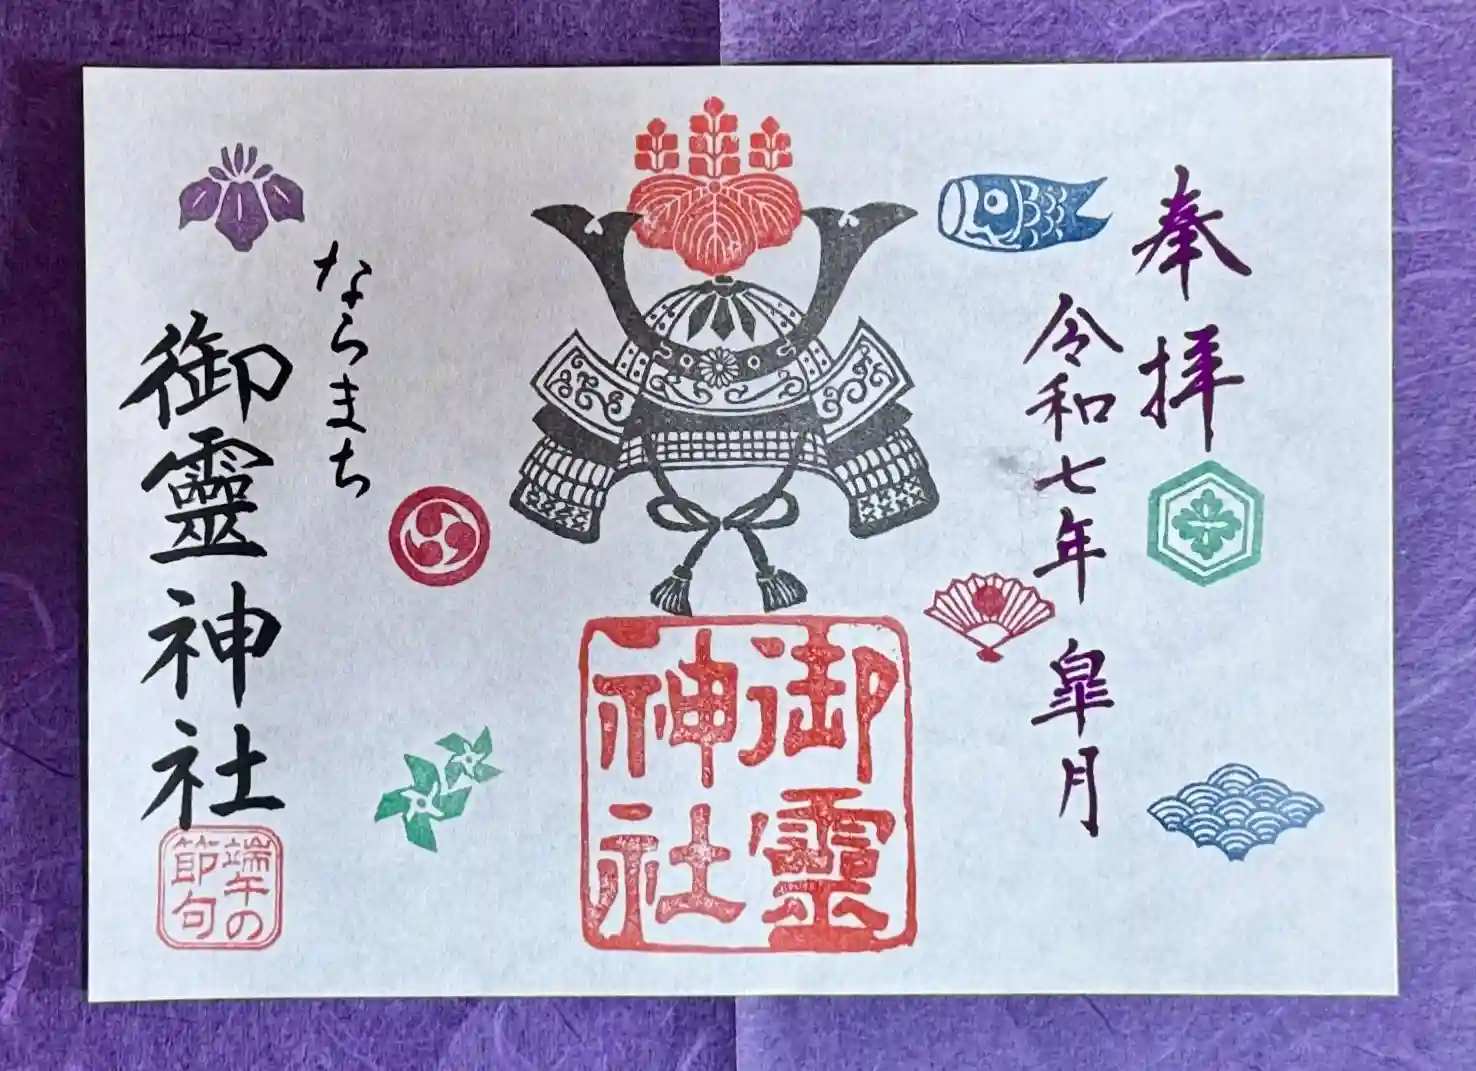 奉拝
令和七年 皐月
御靈
神社
ならまち
御靈神社
端午の
節句